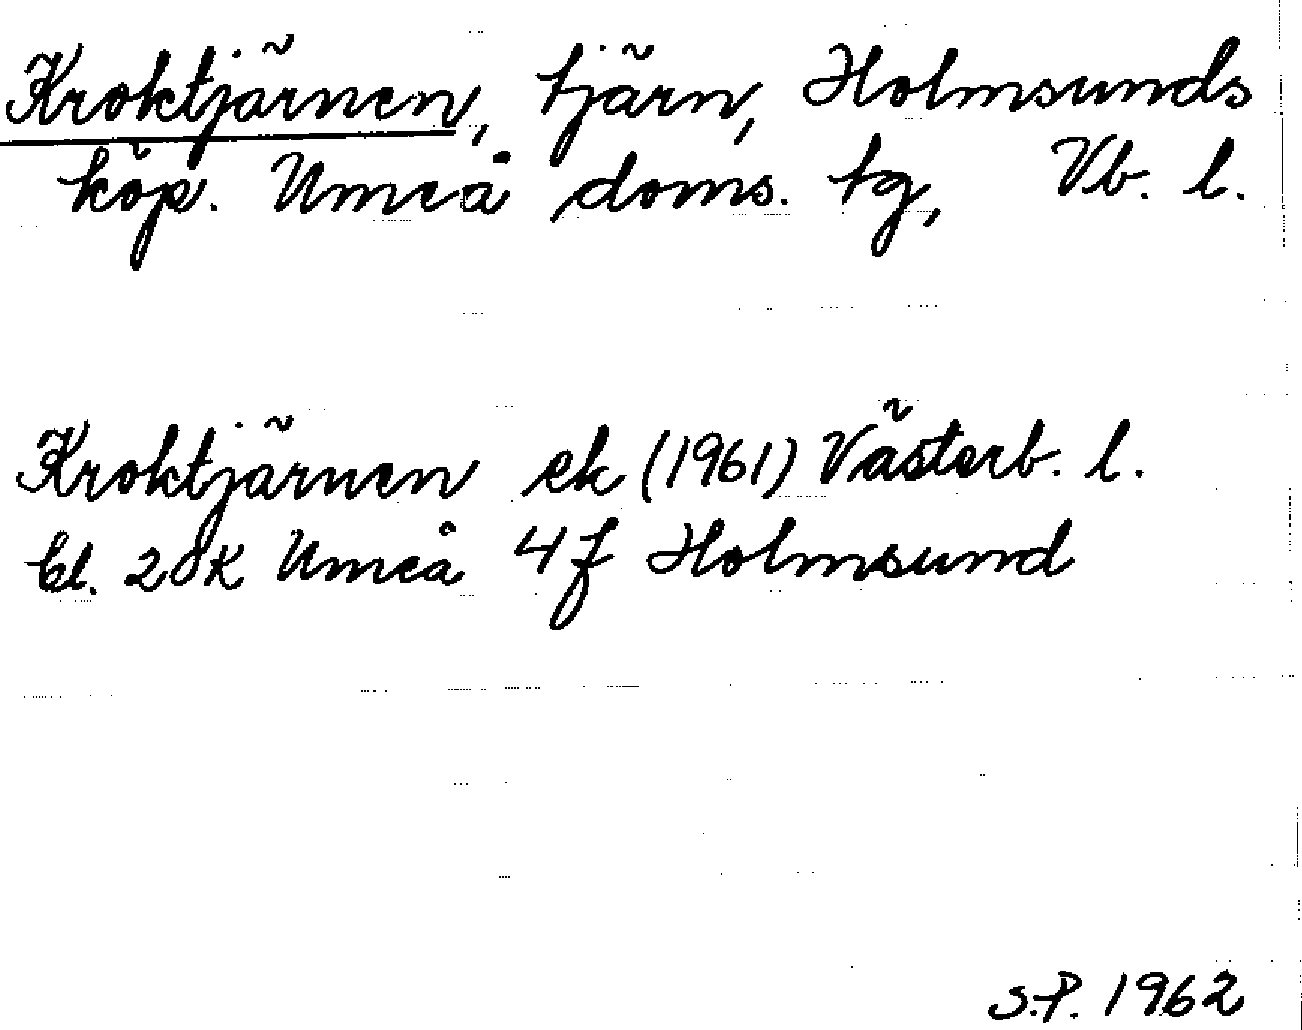 Kroktjärnen, tjärn, Holmsunds
köp. Umeå doms. tg, Vb. l.
Kroktjärnen ek (1961) Västerb. l.
bl. 20K Umeå 4f Holmsund
S.P. 1962